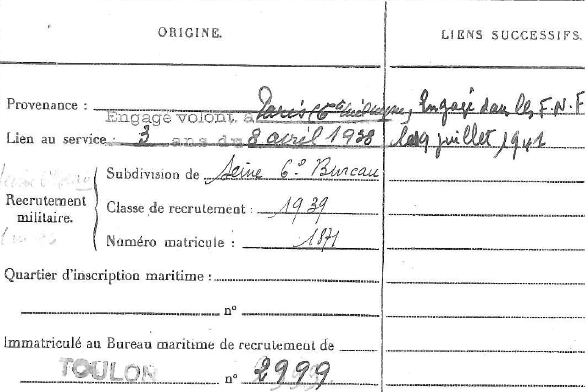 ORIGINE.
LIENS SUCCESSIFS.
Provenance :
Engagé volont à Paris (6e
Engagé dans les F.N.F
Lien au service : 3 ans du 8 avril 1938
le 19 juillet 1941
Recrutement militaire.
Subdivision de Seine 6e Bureau
Classe de recrutement : 1939
Numéro matricule : 1871
Quartier d'inscription maritime :
n°
Immatriculé au Bureau maritime de recrutement de
TOULON n° 2999